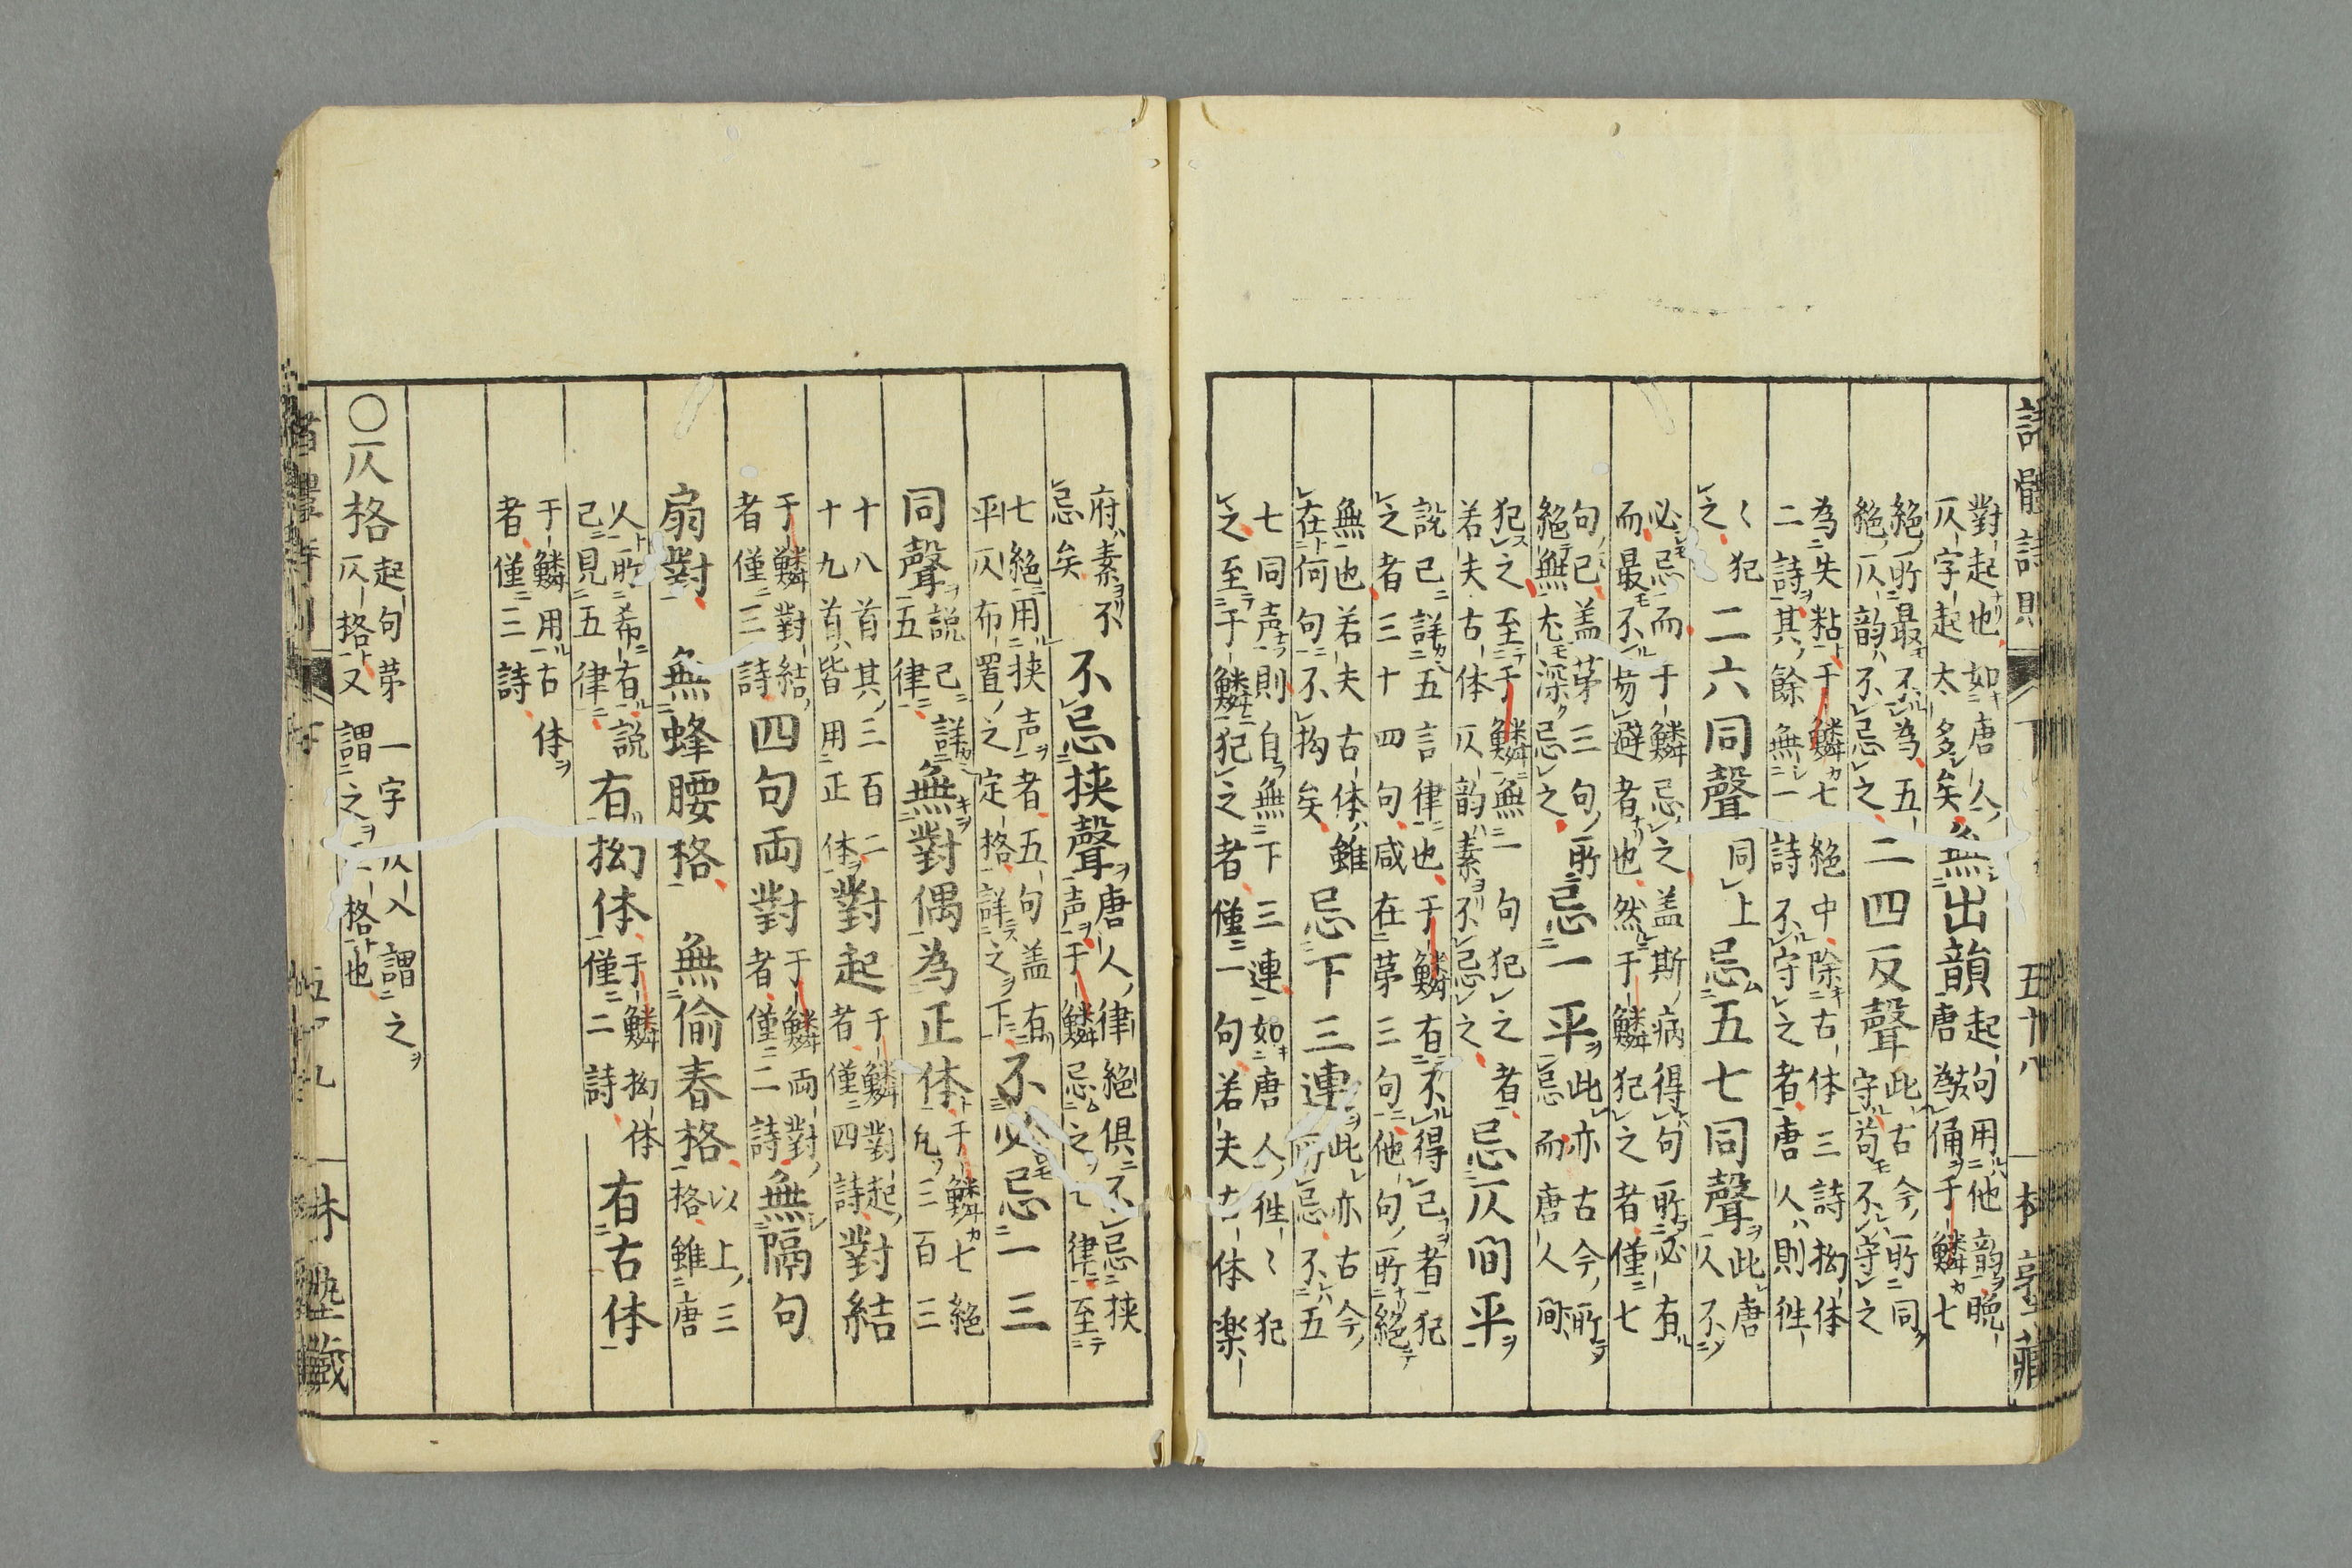 詩體詩則 下 五十八
對起也如唐人
仄字起太多矣
無出韻
起句用他韵晩
唐為甬于鱗七
絶所最不為五
絶仄韵不忌之
二四反聲
此古今所同
守苟不守之
為失粘于鱗七絶中除古体三詩拗体
二詩其餘無一詩不守之者唐人則徃
〻犯
之
二六同聲
同上
忌五七同聲
此唐
人不
必忌而于鱗忌之盖斯病得句所必有
而最不易避者也然于鱗犯之者僅七
句已盖苐三句所
絶無尤深忌之
忌一平
此亦古今所
忌而唐人間
犯之至于鱗無一句犯之者
若夫古体仄韵素不忌之
忌仄間平
説已詳五言律也于鱗有不得已者犯
之者三十四句咸在苐三句他句所絶
無也若夫古体雖
在何句不拘矣
忌下三連
此亦古今
所忌不五
七同声則自無下三連如唐人徃〻犯
之至于鱗犯之者僅一句若夫古体楽
府素不
忌矣
不忌挾聲
唐人律絶俱不忌挾
声于鱗忌之七律至
七絶用挾声者五句盖有
平仄布置之定格詳之下
不必忌一三
同聲
説已詳
五律
無對偶為正体
于鱗七絶
凢三百三
十八首其三百二
十九首皆用正体
對起
于鱗對起
者僅四詩
對結
于鱗對結
者僅三詩
四句両對
于鱗両對
者僅二詩
無隔句
扇對
無蜂腰格
無偷春格
以上三
格雖唐
人所希有説
已見五律
有拗体
于鱗拗体
僅二詩
有古体
于鱗用古体
者僅三詩
〇仄格
起句苐一字仄入謂之
仄格又謂之
格也